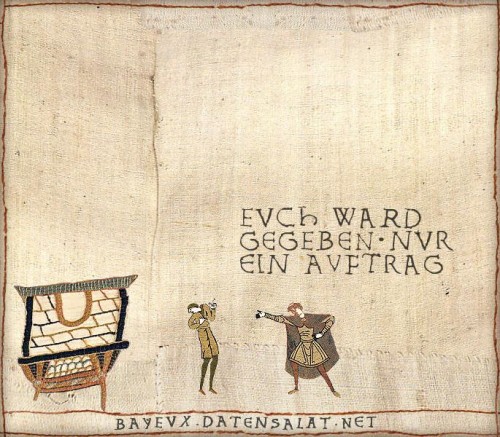 EVCh WARD
GEGEBEN · NVR
EIN AVFTRAG
BAYEVX.DATENSALAT.NET